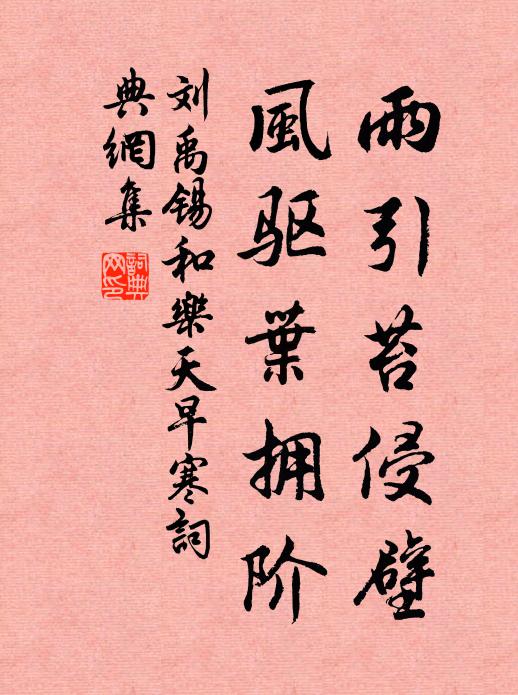 雨引苔侵壁
風驱葉拥阶
刘禹锡和樂天早寒詞
典網集
詞典网印